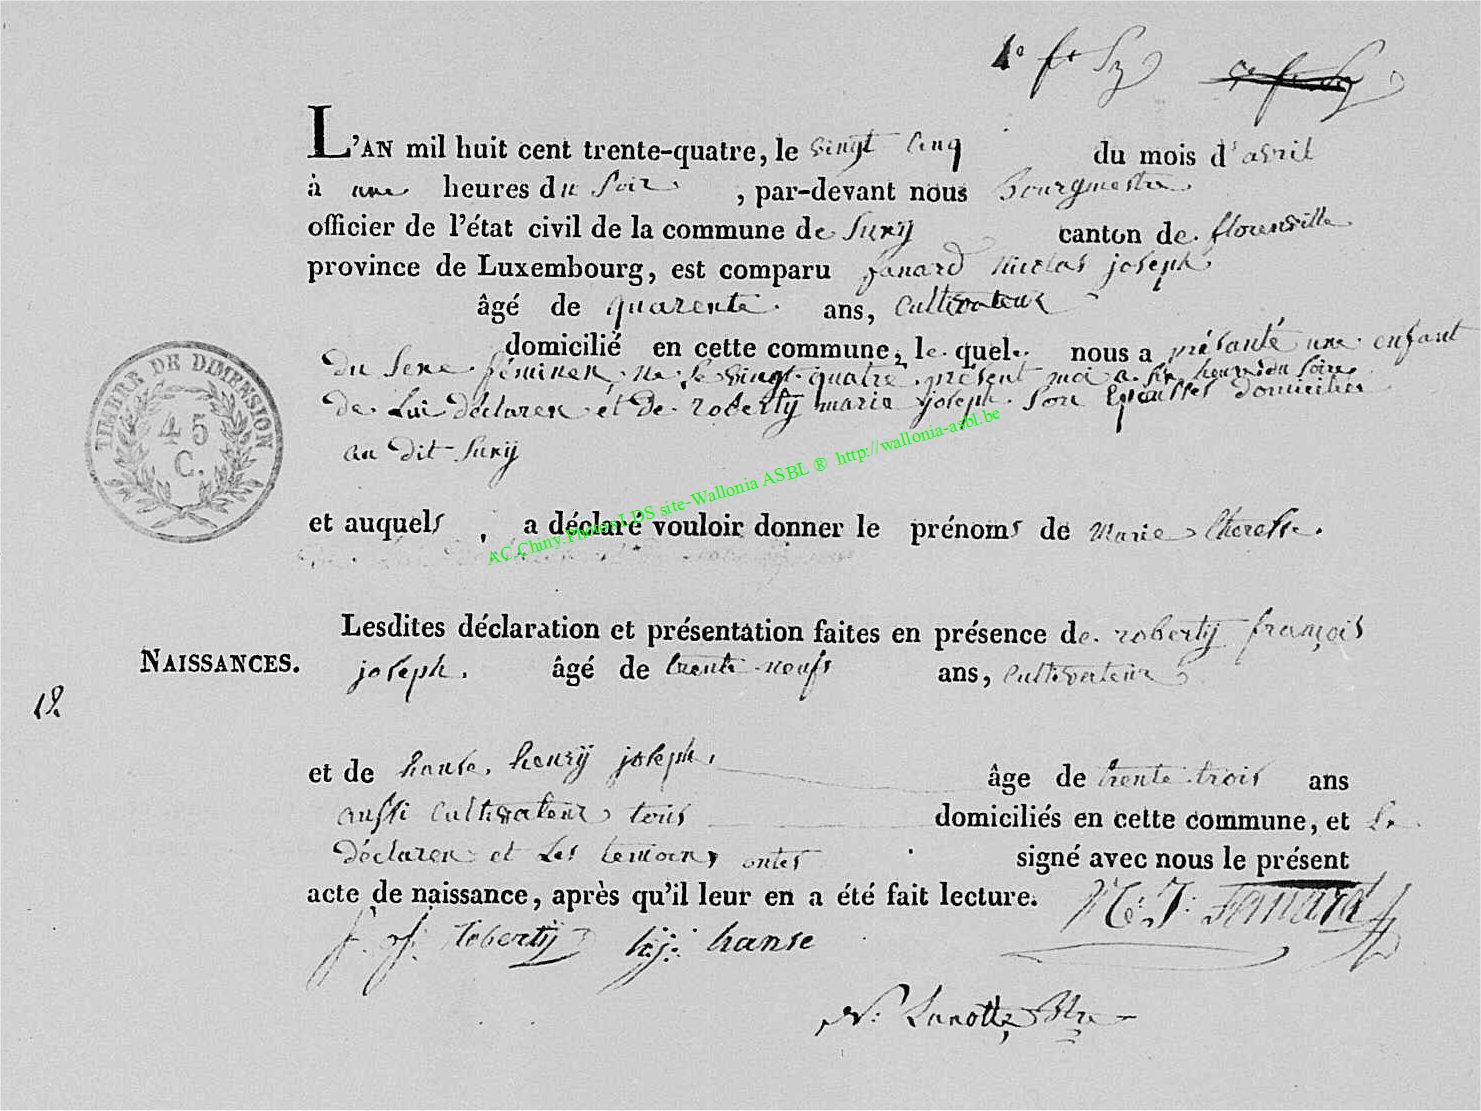 L'AN mil huit cent trente-quatre, le vingt cinq du mois d'avril
à une heures du soir, par-devant nous Bourgmestre
officier de l'état civil de la commune de Suxÿ canton de florenville
province de Luxembourg, est comparu fanard nicolas joseph
âgé de quarente ans, cultivateur
domicilié en cette commune, le quel nous a présanté une enfant
du sexe féminen, né le vingt quatre présent moi a six heure du soire
de Lui déclaren et de robertÿ marie joseph son Epousse domicilié
au dit Suxÿ
TIMBRE DE DIMENSION
45
C.
et auquels, a déclaré vouloir donner le prénoms de Marie Theresse.
AC.Chiny.Photos LDS site-Wallonia ASBL ® http://wallonia-asbl.be
Lesdites déclaration et présentation faites en présence de robertÿ françois
NAISSANCES.
joseph. âgé de trente neufs ans, cultivateur
et de hanse, henrÿ joseph, âge de trente trois ans
aussi cultivateur tous domiciliés en cette commune, et Le
déclaren et Les temoins ontes signé avec nous le présent
acte de naissance, après qu'il leur en a été fait lecture.
N: J: Fanard
f. j. Robertÿ h:j: hanse
N: Lanotte, Btre